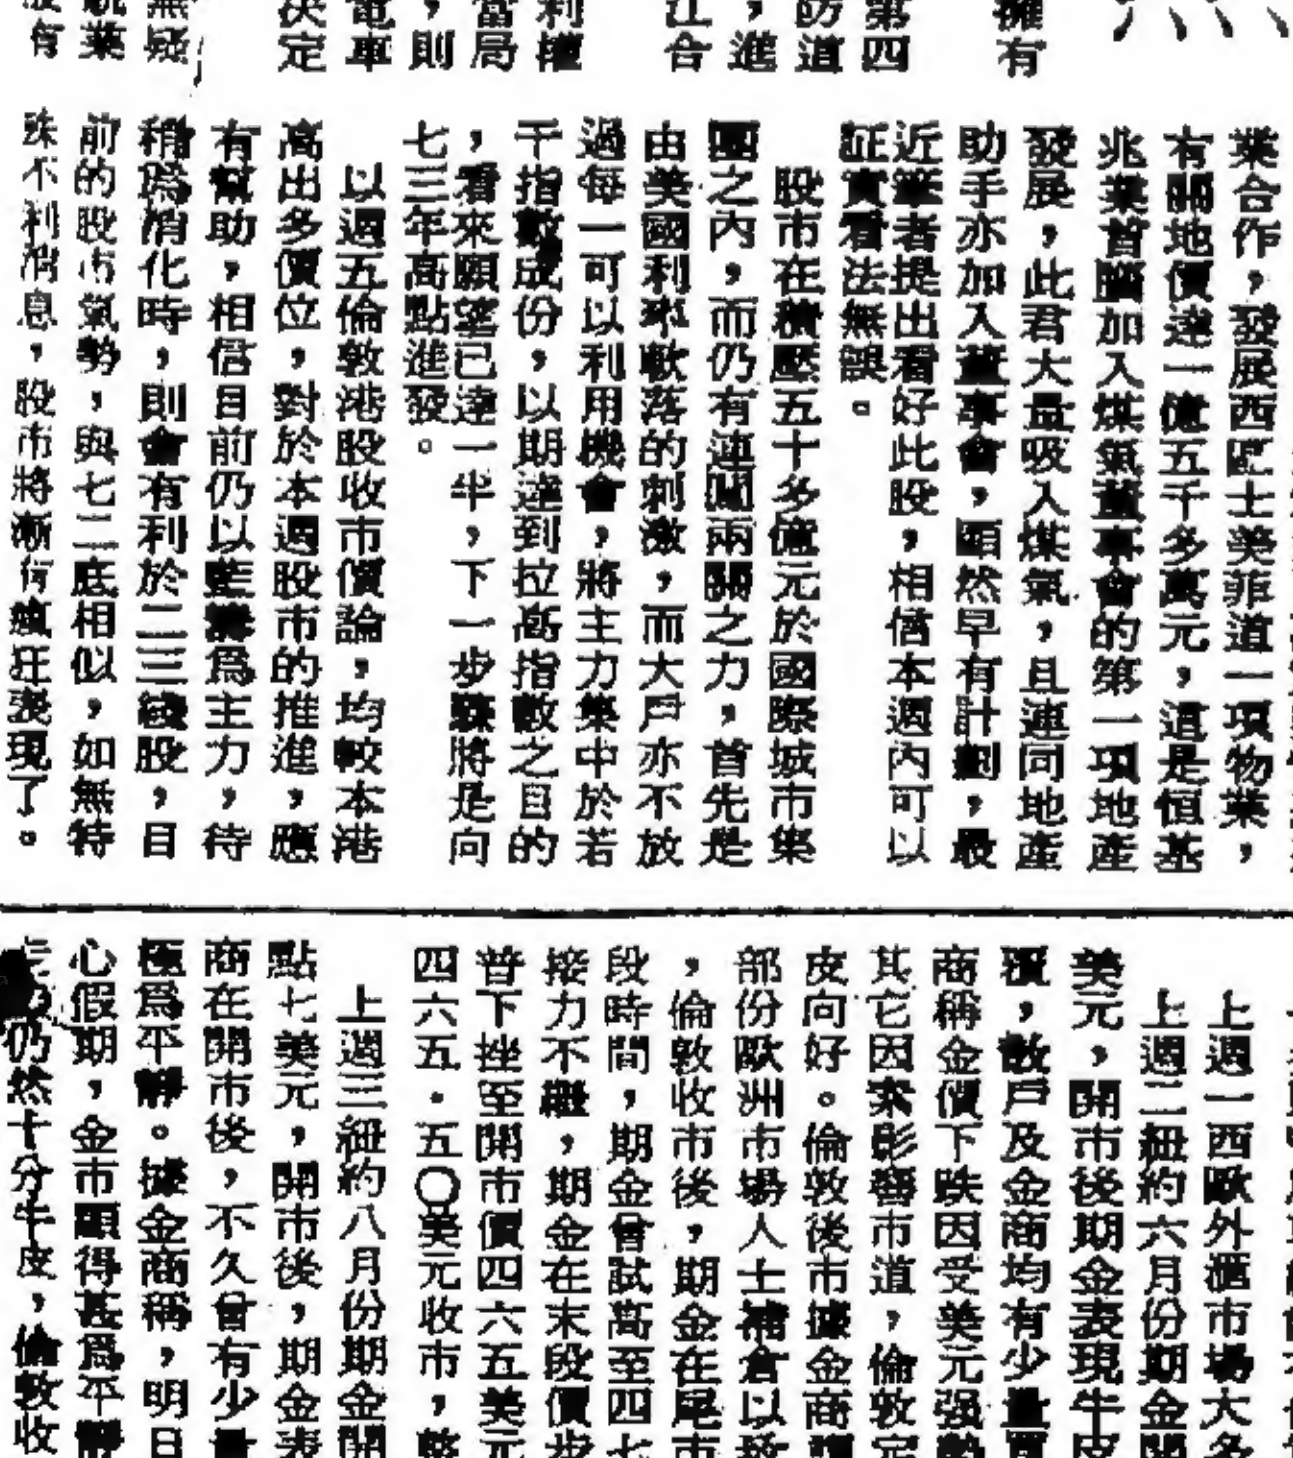 擁有
第四
防道
，進
江合
利權
當局
，則
電車
決定
無疑
航業
沒有
業合作，發展西區士美菲道一項物業，
有關地價達一億五千多萬元，這是恒基
兆業首腦加入煤氣董事會的第一項地產
發展，此君大量吸入煤氣，且連同地產
助手亦加入董事會，顯然早有計劃，最
近筆者提出看好此股，相信本週內可以
証實看法無誤。
股市在積壓五十多億元於國際城市集
團之內，而仍有連闖兩關之力，首先是
由美國利率軟落的刺激，而大戶亦不放
過每一可以利用機會，將主力集中於若
干指數成份，以期達到拉高指數之目的
，看來願望已達一半，下一步驟將是向
七三年高點進發。
以週五倫敦港股收市價論，均較本港
高出多價位，對於本週股市的推進，應
有幫助，相信目前仍以藍籌爲主力，待
稍爲消化時，則會有利於二三綫股，目
前的股市氣勢，與七二底相似，如無特
殊不利消息，股市將漸有瘋狂表現了。
上週一西歐外滙市場大多
上週二紐約六月份期金開
美元，開市後期金表現牛皮
，散戶及金商均有少量買
商稱金價下跌因受美元强勢
其它因素影響市道，倫敦定
皮向好。倫敦後市據金商謂
部份歐洲市場人士補倉以致
，倫敦收市後，期金在尾市
段時間，期金曾試高至四七
接力不繼，期金在末段價步
普下挫至開市價四六五美元
四六五．五〇美元收市，整
上週三紐約八月份期金開
點七美元，開市後，期金表
商在開市後，不久曾有少量
極爲平靜。據金商稱，明日
心假期，金市顯得甚爲平靜
仍然十分牛皮，倫敦收